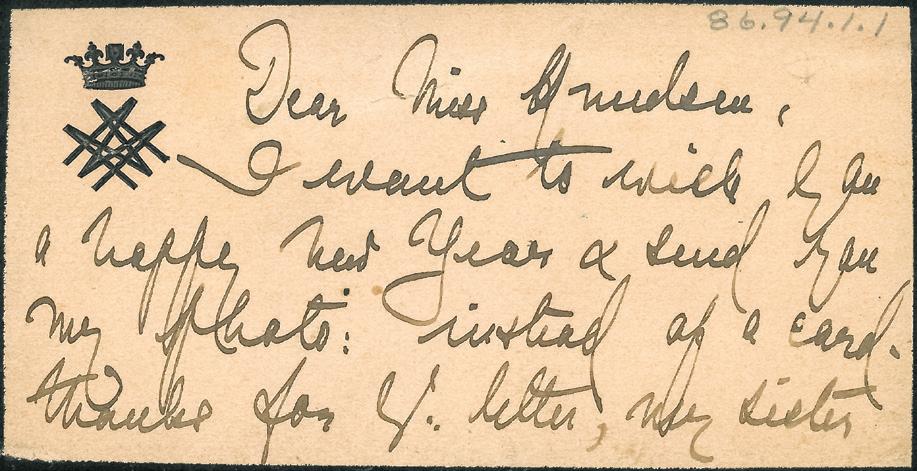 86.94.1.1
Dear Miss Knudsen,
I want to wish you
a happy New Year & send you
my photo: instead of a card.
thanks for y. letter, my sister